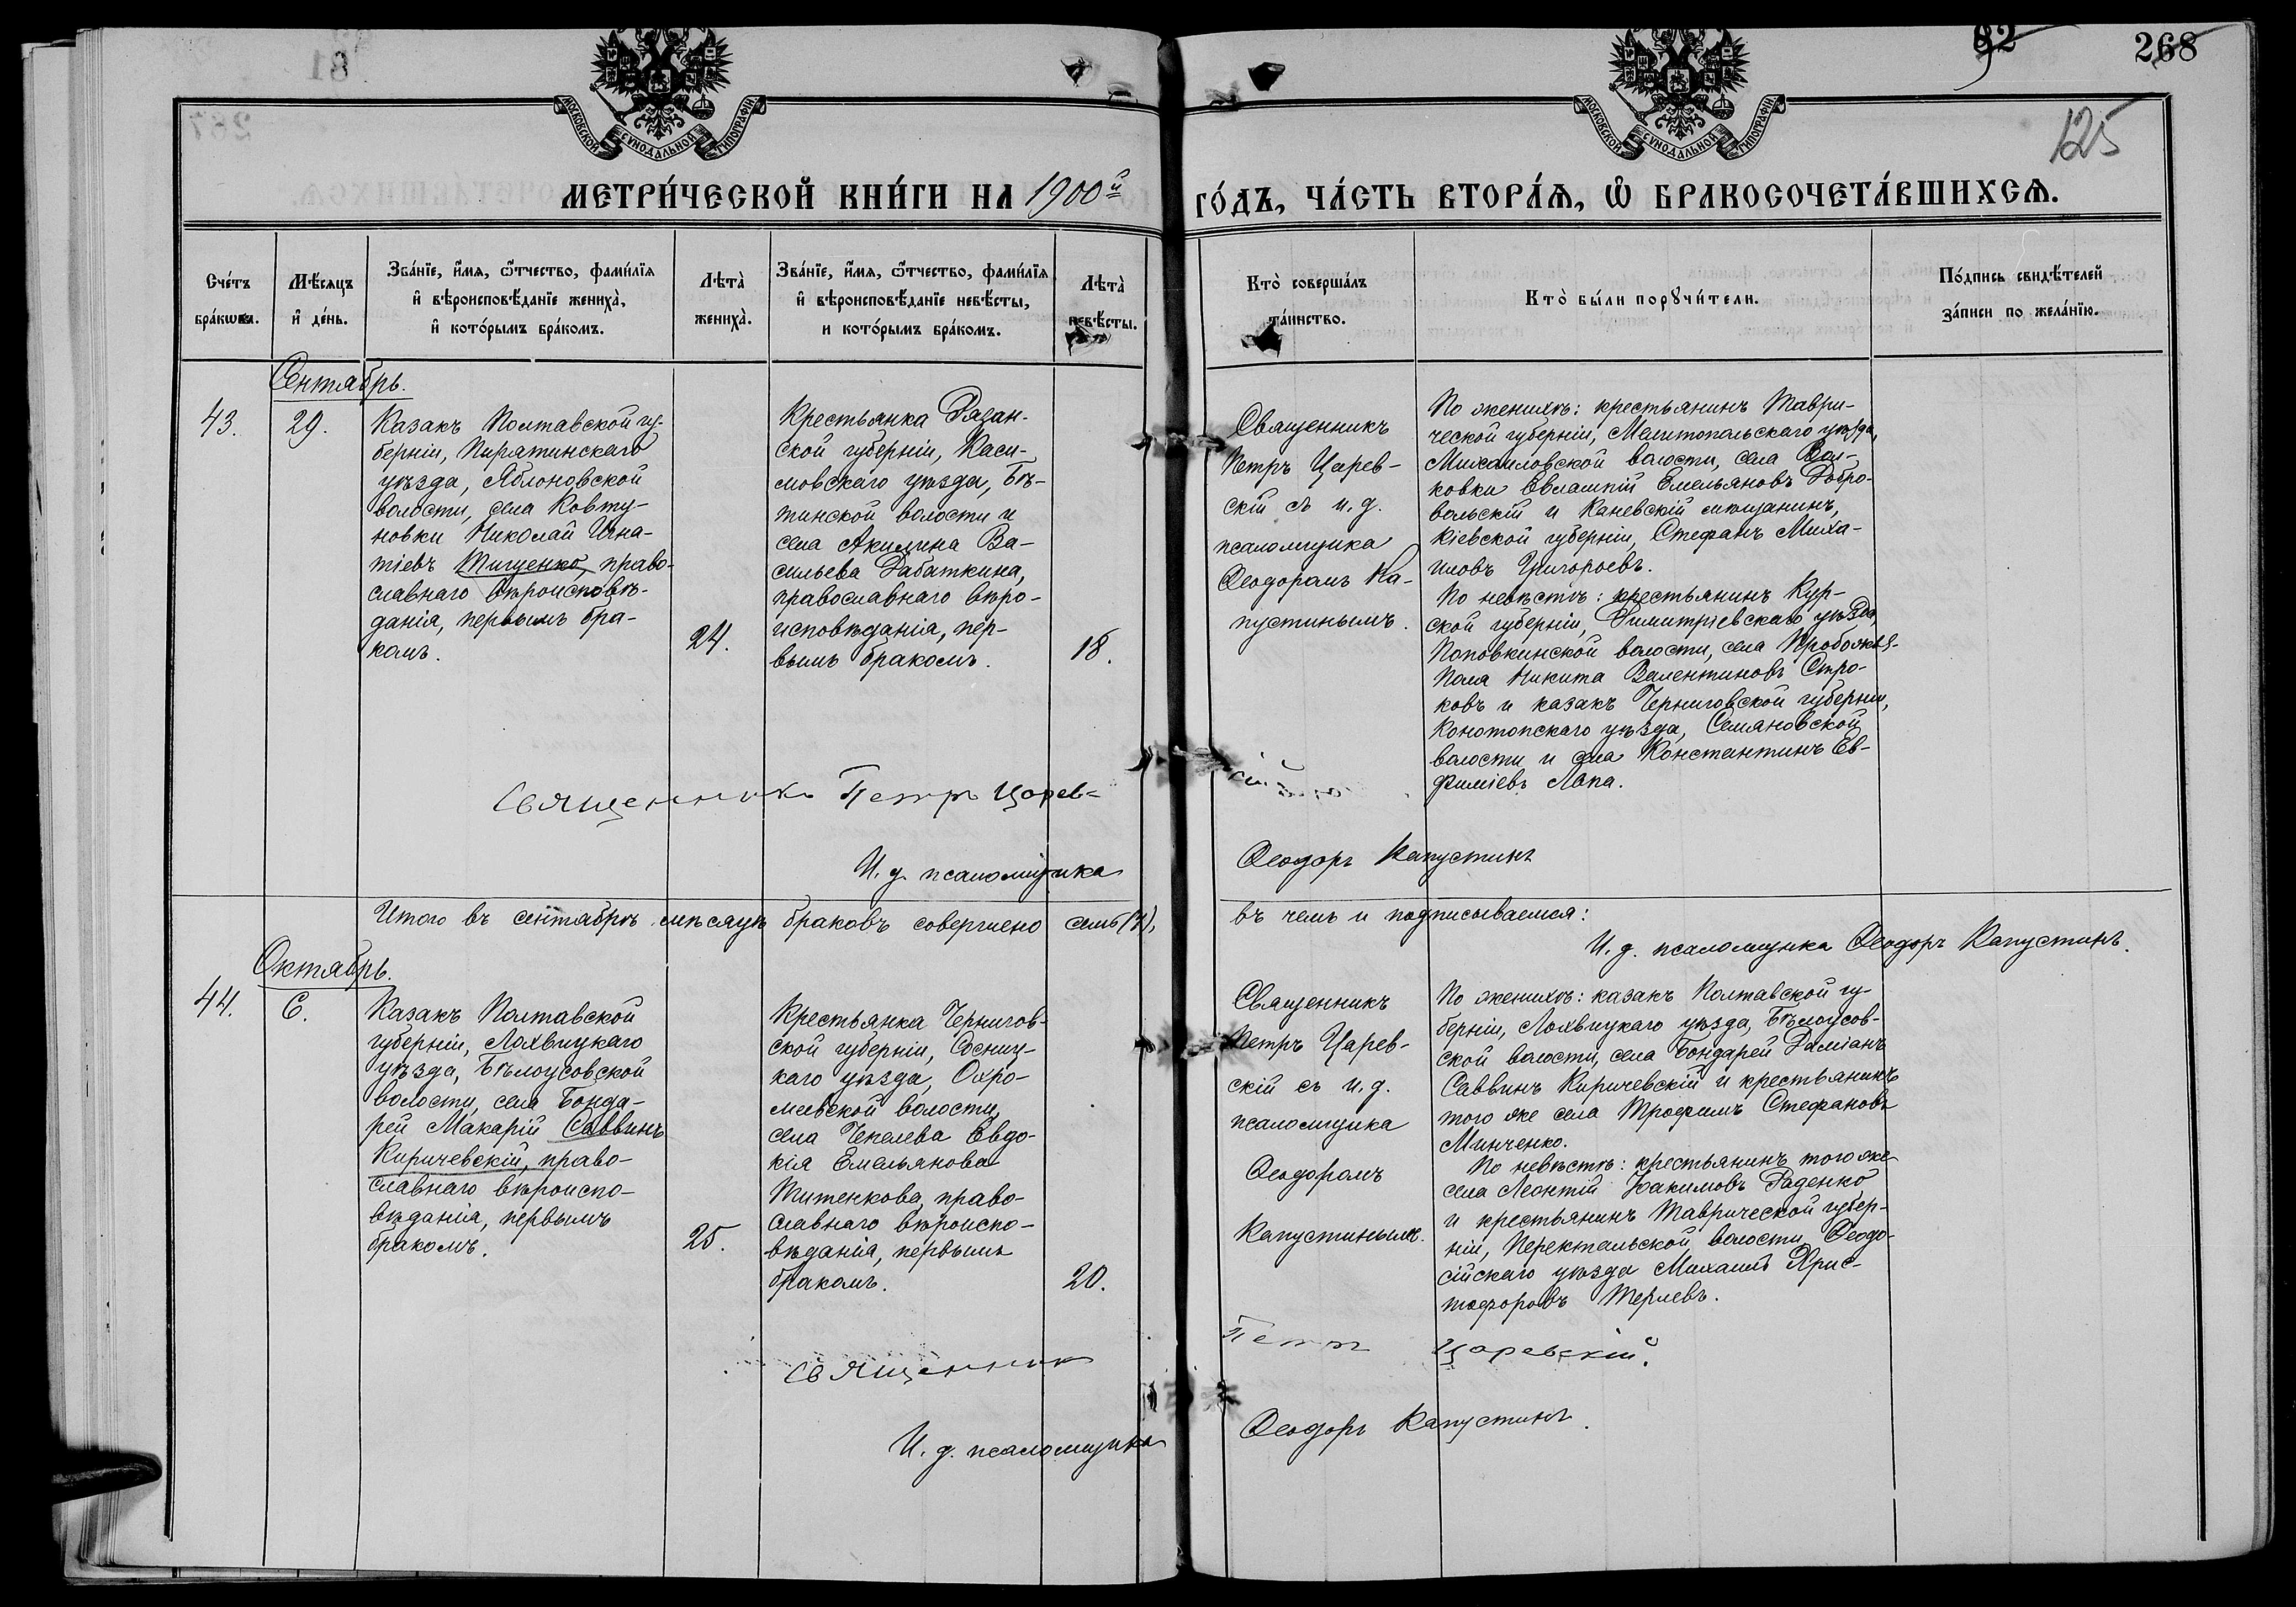 81
82
268
125
267
МОСКОВСКОЙ СѴНОДАЛЬНОЙ ТИПОГРАФІИ
МОСКОВСКОЙ СѴНОДАЛЬНОЙ ТИПОГРАФІИ
МЕТРИ́ЧЕСКОЙ КНИ́ГИ НА 1900й
ГО́ДЪ, ЧА́СТЬ ВТОРА́Ѧ, Ѡ҆ БРАКОСОЧЕТА́ВШИХСѦ.
Сче́тъ
бра́кωвъ.
Мѣ́сяцъ
и҆ де́нь.
Зва́нїе, и҆́мѧ, ѻ҆́тчество, фами́лїѧ
и҆ вѣроисповѣ́данїе жениха̀,
и҆ кото́рымъ бра́комъ.
Лѣта̀
жениха̀.
Зва́нїе, и҆́мѧ, ѻ҆́тчество, фами́лїѧ
и҆ вѣроисповѣ́данїе невѣ́сты,
и кото́рымъ бра́комъ.
Лѣта̀
невѣ́сты.
Кто̀ соверша́лъ
та́инство.
Кто̀ бы́ли порꙋчи́тели.
По́дпись свидѣ́телей
за́писи по жела́нїю.
Сентябрь.
43.
29.
Казакъ Полтавской гу-
берніи, Пирятинскаго
уѣзда, Яблоновской
волости, села Ковту-
новки Николай Игна-
тіевъ Тищенко, право-
славнаго вѣроисповѣ-
данія, первымъ бра-
комъ.
24.
Крестьянка Рязан-
ской губерніи, Каси-
мовскаго уѣзда, Бѣ-
тинской волости и
села Акилина Ва-
сильева Рабаткина,
православнаго вѣро-
исповѣданія, пер-
вымъ бракомъ.
18.
Священникъ
Петръ Царев-
скій съ и.д.
псаломщика
Ѳеодоромъ Ка-
пустинымъ.
По женихѣ: крестьянинъ Таври-
ческой губерніи, Мелитопольскаго уѣзда,
Михайловской волости, села Вол-
ковки Евлампій Емельяновъ Добро-
вольскій и Каневскій мѣщанинъ,
Кіевской губерніи, Стефанъ Миха-
иловъ Григорьевъ.
По невѣстѣ: крестьянинъ Кур-
ской губерніи, Димитріевскаго уѣзда,
Поповкинской волости, села Пробожья-
Поля Никита Валентиновъ Стро-
ковъ и казакъ Черниговской губерніи,
Конотопскаго уѣзда, Семяновской
волости и села Константинъ Ев-
фиміевъ Лапа.
Священникъ Петръ Царев=
скій
И.д. псаломщика
Ѳеодоръ Капустинъ
Итого въ сентябрѣ мѣсяцѣ браковъ совершено семь (7),
въ чемъ и подписываемся:
И.д. псаломщика Ѳеодоръ Капустинъ.
Октябрь.
44.
6.
Казакъ Полтавской
губерніи, Лохвицкаго
уѣзда, Бѣлоусовской
волости, села Бонда-
рей Макарій Саввинъ
Киричевскій, право-
славнаго вѣроиспо-
вѣданія, первымъ
бракомъ.
25.
Крестьянка Чернигов-
ской губерніи, Сосниц-
каго уѣзда, Охро-
меевской волости,
села Чепелева Евдо-
кія Емельянова
Титенкова, право-
славнаго вѣроиспо-
вѣданія, первымъ
бракомъ.
20.
Священникъ
Петръ Царев-
скій съ и.д.
псаломщика
Ѳеодоромъ
Капустинымъ.
По женихѣ: казакъ Полтавской гу-
берніи, Лохвицкаго уѣзда, Бѣлоусов-
ской волости, села Бондарей Даміанъ
Саввинъ Киричевскій и крестьянинъ
того же села Трофимъ Стефановъ
Минченко.
По невѣстѣ: крестьянинъ того же
села Леонтій Іоакимовъ Раденко
и крестьянинъ Таврической губер-
ніи, волости, Ѳеодо-
сійскаго уѣзда Михаилъ Хрис-
тофоровъ Терлевъ.
Священникъ
Петръ Царевскій.
И.д. псаломщика
Ѳеодоръ Капустинъ.